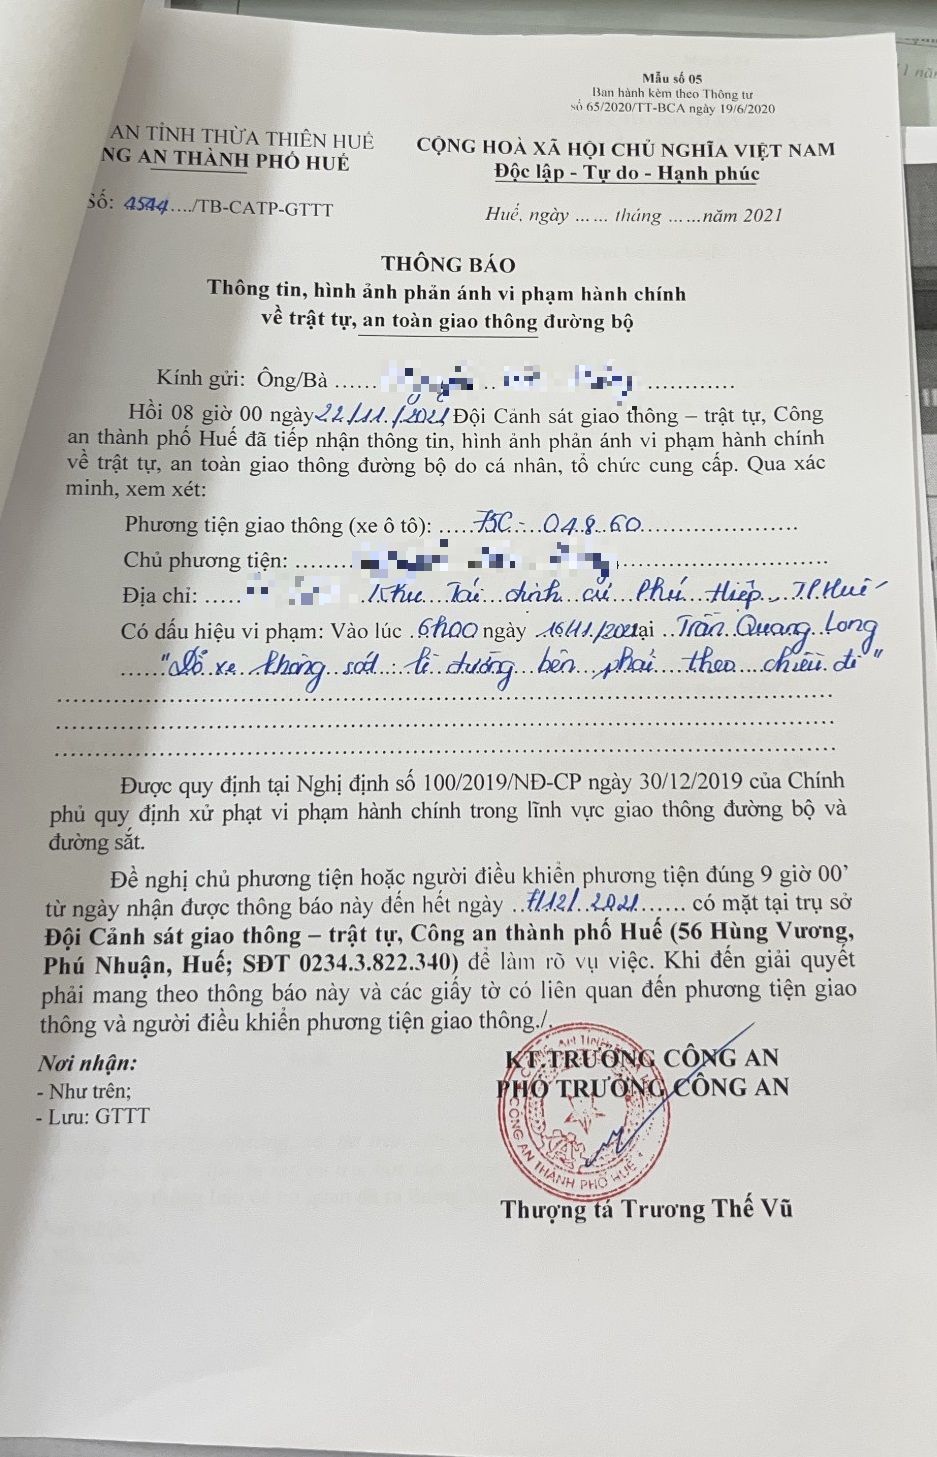 Mẫu số 05
Ban hành kèm theo Thông tư
số 65/2020/TT-BCA ngày 19/6/2020
AN TỈNH THỪA THIÊN HUẾ
NG AN THÀNH PHỐ HUẾ
CỘNG HOÀ XÃ HỘI CHỦ NGHĨA VIỆT NAM
Độc lập - Tự do - Hạnh phúc
Số: 4544..../TB-CATP-GTTT
Huế, ngày ...... tháng ......năm 2021
THÔNG BÁO
Thông tin, hình ảnh phản ánh vi phạm hành chính
về trật tự, an toàn giao thông đường bộ
Kính gửi: Ông/Bà ......
Hồi 08 giờ 00 ngày 22/11./2021, Đội Cảnh sát giao thông – trật tự, Công
an thành phố Huế đã tiếp nhận thông tin, hình ảnh phản ánh vi phạm hành chính
về trật tự, an toàn giao thông đường bộ do cá nhân, tổ chức cung cấp. Qua xác
minh, xem xét:
Phương tiện giao thông (xe ô tô): .....75C.-..04.8.60.......................
Chủ phương tiện: ........
Địa chỉ: ..... Khu Tái định cư Phú Hiệp, TP.Huế
Có dấu hiệu vi phạm: Vào lúc .6h00 ngày .16/11./2021 tại ..Trần Quang Long
......"Đỗ xe không sát lề đường bên phải theo chiều đi"
Được quy định tại Nghị định số 100/2019/NĐ-CP ngày 30/12/2019 của Chính
phủ quy định xử phạt vi phạm hành chính trong lĩnh vực giao thông đường bộ và
đường sắt.
Đề nghị chủ phương tiện hoặc người điều khiển phương tiện đúng 9 giờ 00’
từ ngày nhận được thông báo này đến hết ngày ..7/12/..2021....... có mặt tại trụ sở
Đội Cảnh sát giao thông – trật tự, Công an thành phố Huế (56 Hùng Vương,
Phú Nhuận, Huế; SĐT 0234.3.822.340) để làm rõ vụ việc. Khi đến giải quyết
phải mang theo thông báo này và các giấy tờ có liên quan đến phương tiện giao
thông và người điều khiển phương tiện giao thông./.
Nơi nhận:
- Như trên;
- Lưu: GTTT
KT.TRƯỞNG CÔNG AN
PHÓ TRƯỞNG CÔNG AN
CÔNG AN THÀNH PHỐ HUẾ
Thượng tá Trương Thế Vũ